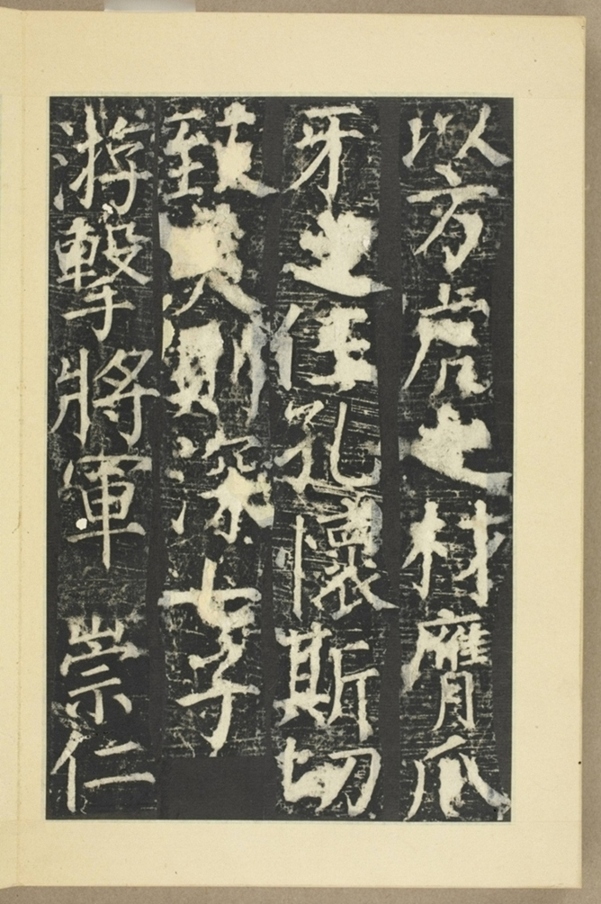 以方虎之材膺爪
牙之任孔懷斯切
致美則深七子
游擊將軍 崇仁